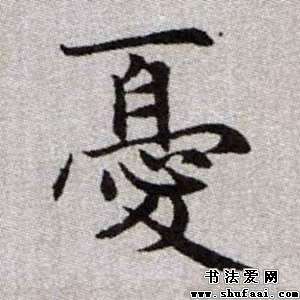 憂
书法爱网
www.shufaai.com